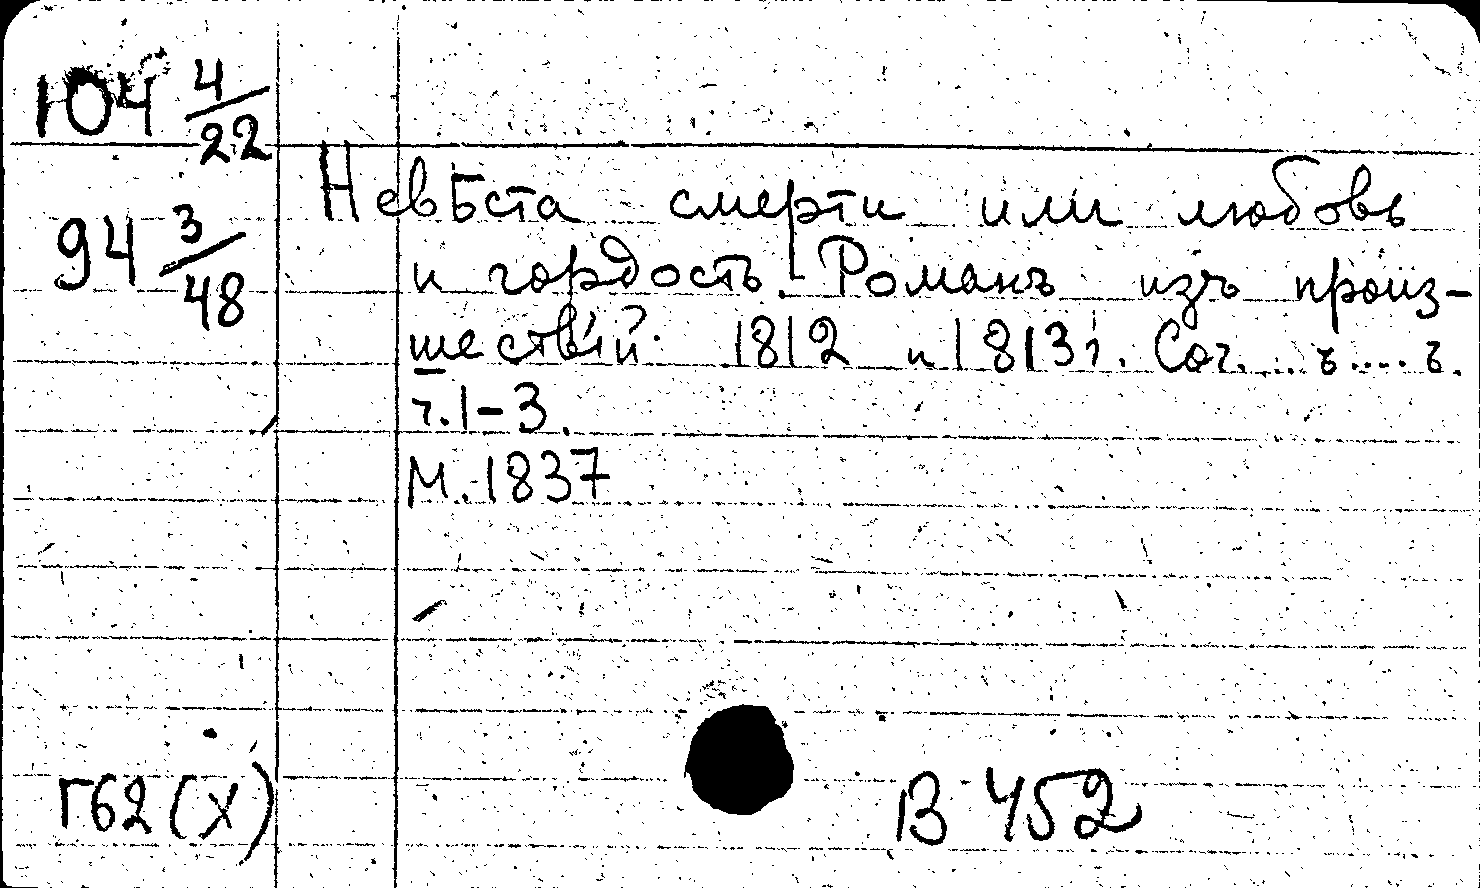 Ю4 4/22
94 3/48
Невѣста смерти или любовь
и гордость. Романъ изъ произ-
шествій 1812 и 1813 г. Соч. ... ъ .... ъ.
ч. 1-3.
М. 1837
Г62 (X)
В 452